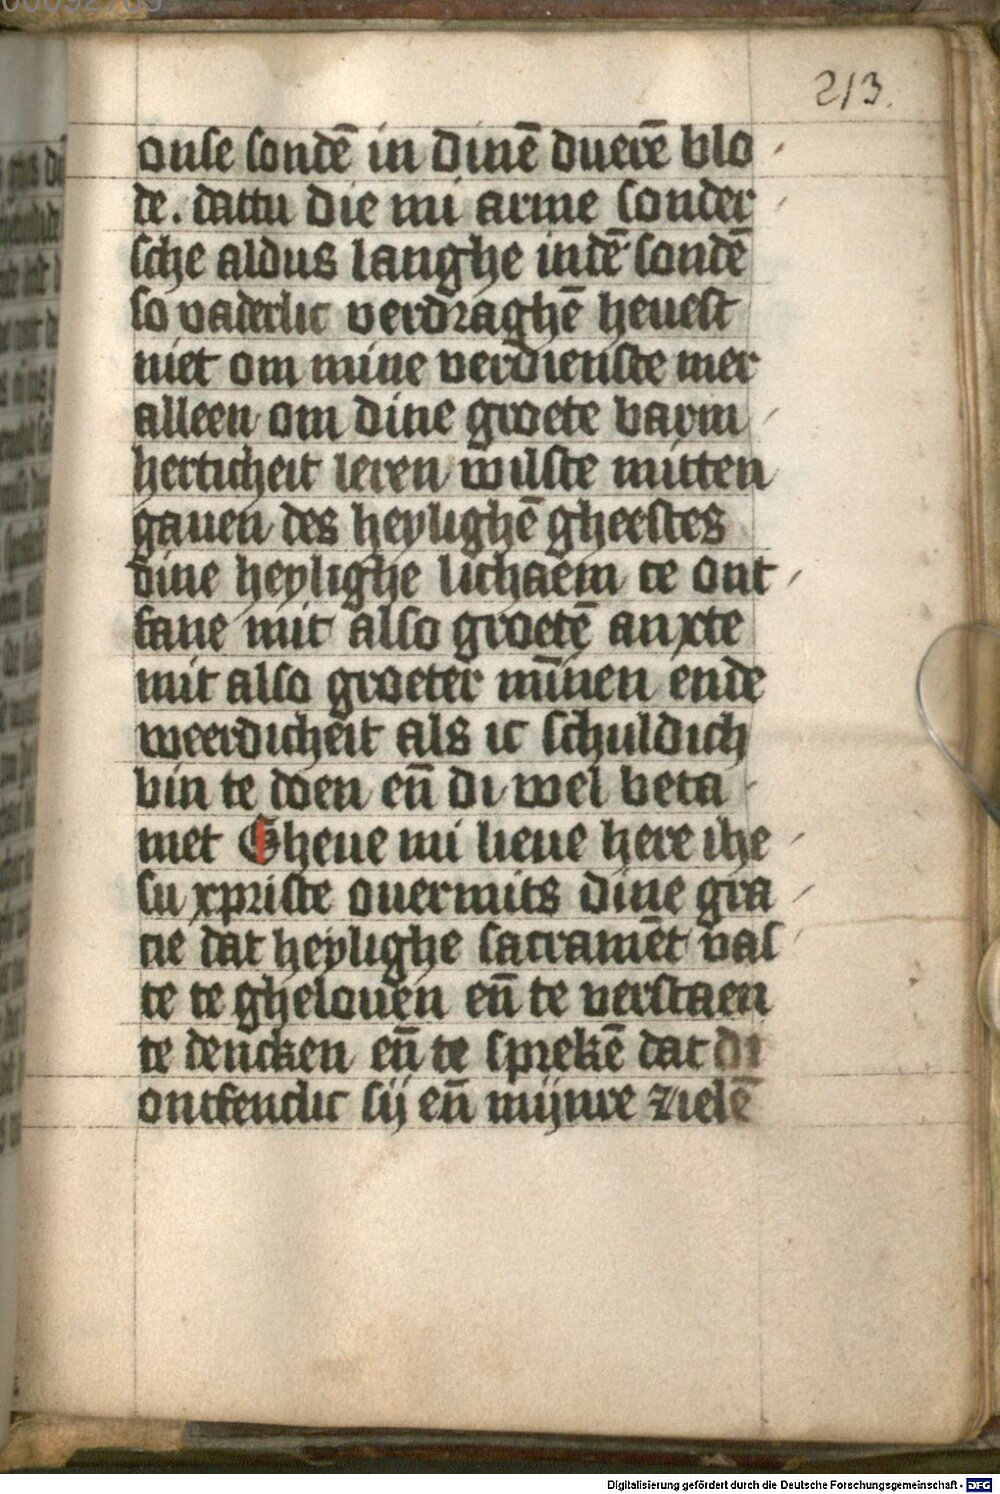 213.
onse sondē in dinē duerē blo
de. dattu die mi arme sonder
sche aldus langhe indē sondē
so vaderlic verdraghē heuest
niet om mine verdienste mer
alleen om dine groete barm
herticheit leren wilste mitten
gauen des heylighē gheestes
dine heylighe lichaem te ont
fane mit also groetē anxte
mit also groeter mīnen ende
weerdicheit als ic schuldich
bin te doen eñ di wel beta
met Gheue mi lieue here ihe
su xpriste ouermits dine gra
cie dat heylighe sacramēt vas
te te ghelouen eñ te verstaen
te dencken eñ te sprekē dat di
ontfenclic sij eñ mijnre zielē
Digitalisierung gefördert durch die Deutsche Forschungsgemeinschaft - DFG